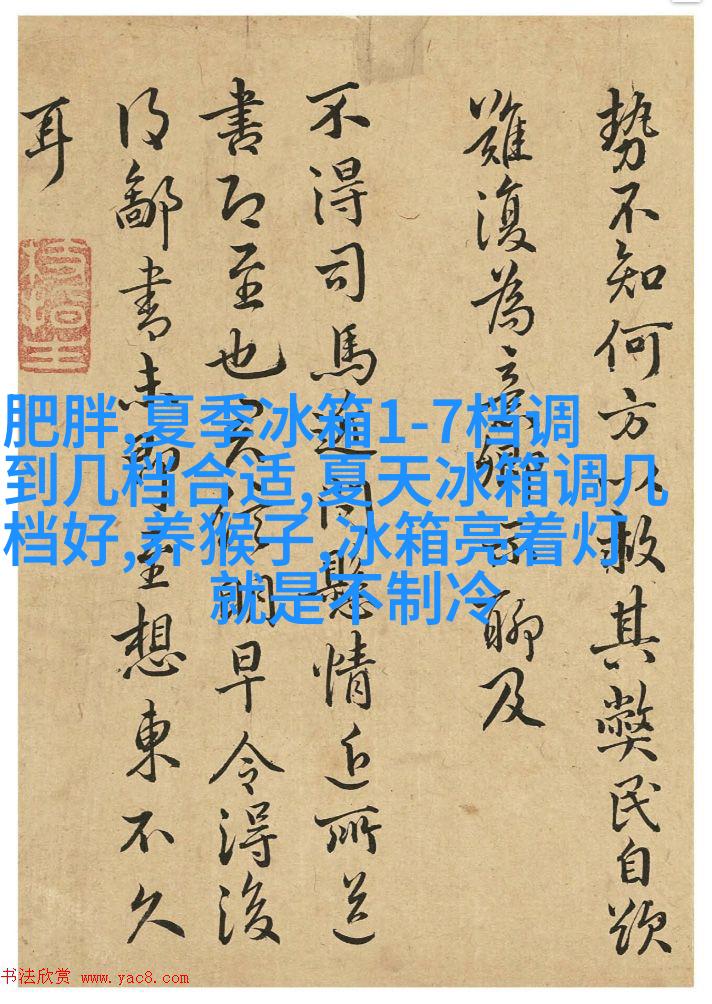 肥胖,夏季冰箱1-7档调
到几档合适,夏天冰箱调几
档好,养猴子,冰箱亮着灯
就是不制冷
勢不知何方以救其弊民自
難復為意聊及
不得司馬問懸情近所送
書即至也早令得後
得鄱書未至想東不久
耳
书法欣赏 www.yac8.com